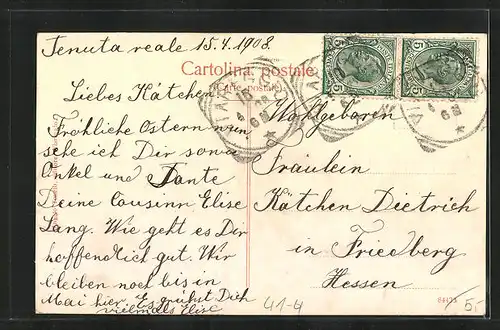 Tenuta reale 15.4.1908.
Cartolina postale
(Carte postale)
Liebes Kätchen
Fröhliche Ostern wun
sche ich Dir sowie
Onkel und Tante
Deine Cousinn Elise
Lang. Wie geht es Dir
hoffendlich gut. Wir
bleiben noch bis in
Mai hier. Es grühst Dich
vielmals Elise
Wohlgeboren
Fräulein
Kätchen Dietrich
in Friedberg
Hessen
41-4
5.-